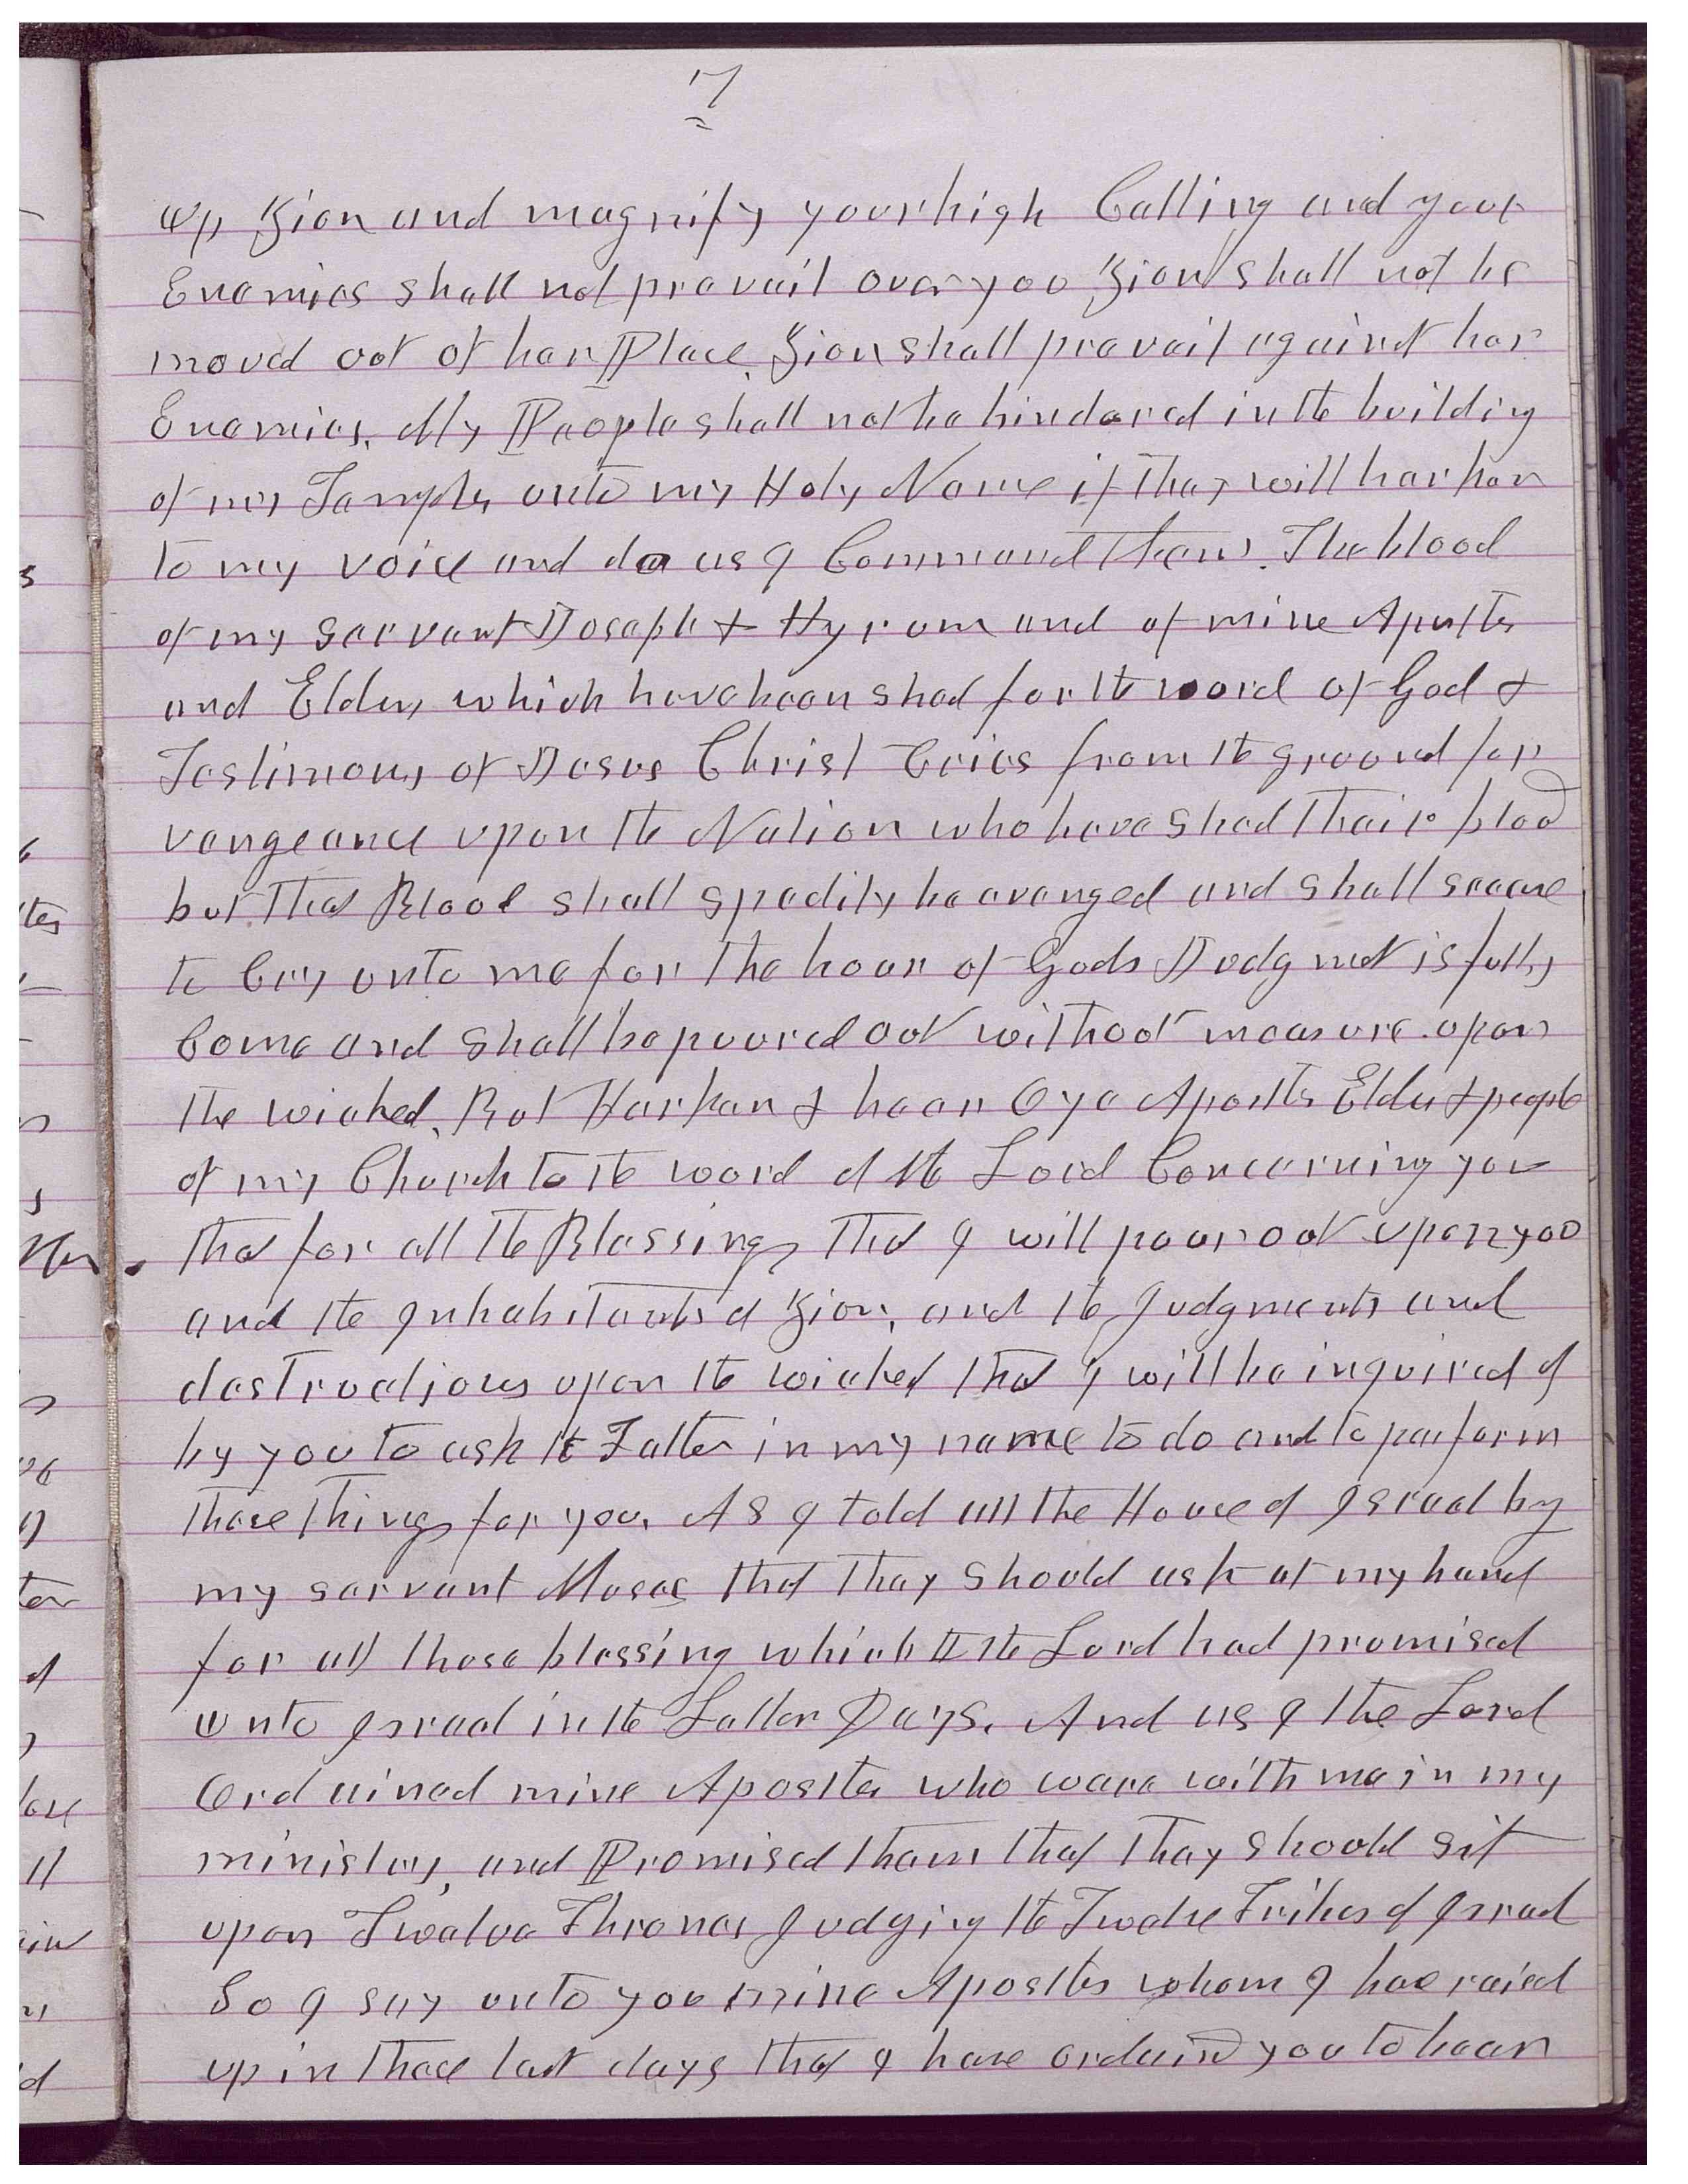 7
up Zion and magnify your high Calling and your
Enemies shall not prevail over you Zion shall not be
moved out of her Place. Zion shall prevail against her
Enemies. My People shall not be hindered in the building
of my Temples unto my Holy Name if they will harken
to my voice and do as I Command them. The blood
of my servant Joseph & Hyrum and of mine Apostles
and Elders which have been shed for the word of God &
Testimony of Jesus Christ Cries from the ground for
vengeance upon the Nation who have shed their blod
but that Blood shall spedily be avenged and shall scease
to Cry unto me for the hour of Gods Judgmet is fully
Come and shall be poured out without measure upon
the wicked. But Harken & hear O ye Apostles Elders & people
of my Church to the word of the Lord Concerning you
that for all the Blessings that I will pour out upon you
and the Inhabitants of Zion, and the Judgments and
destructions upon the wicked that I will be inquired of
by you to ask the Father in my name to do and to perform
these things for you. As I told all the House of Israel by
my servant Moses that they should ask at my hand
for all those blessing which I the Lord had promised
unto Israel in the Latter Days. And as I the Lord
Ordained mine Apostles who ware with me in my
ministry, and Promised them that they should sit
upon Twelve Thrones Judging the Twelve Tribes of Israel
So I say unto you mine Apostles whom I have raised
up in these last days that I have ordaind you to bear